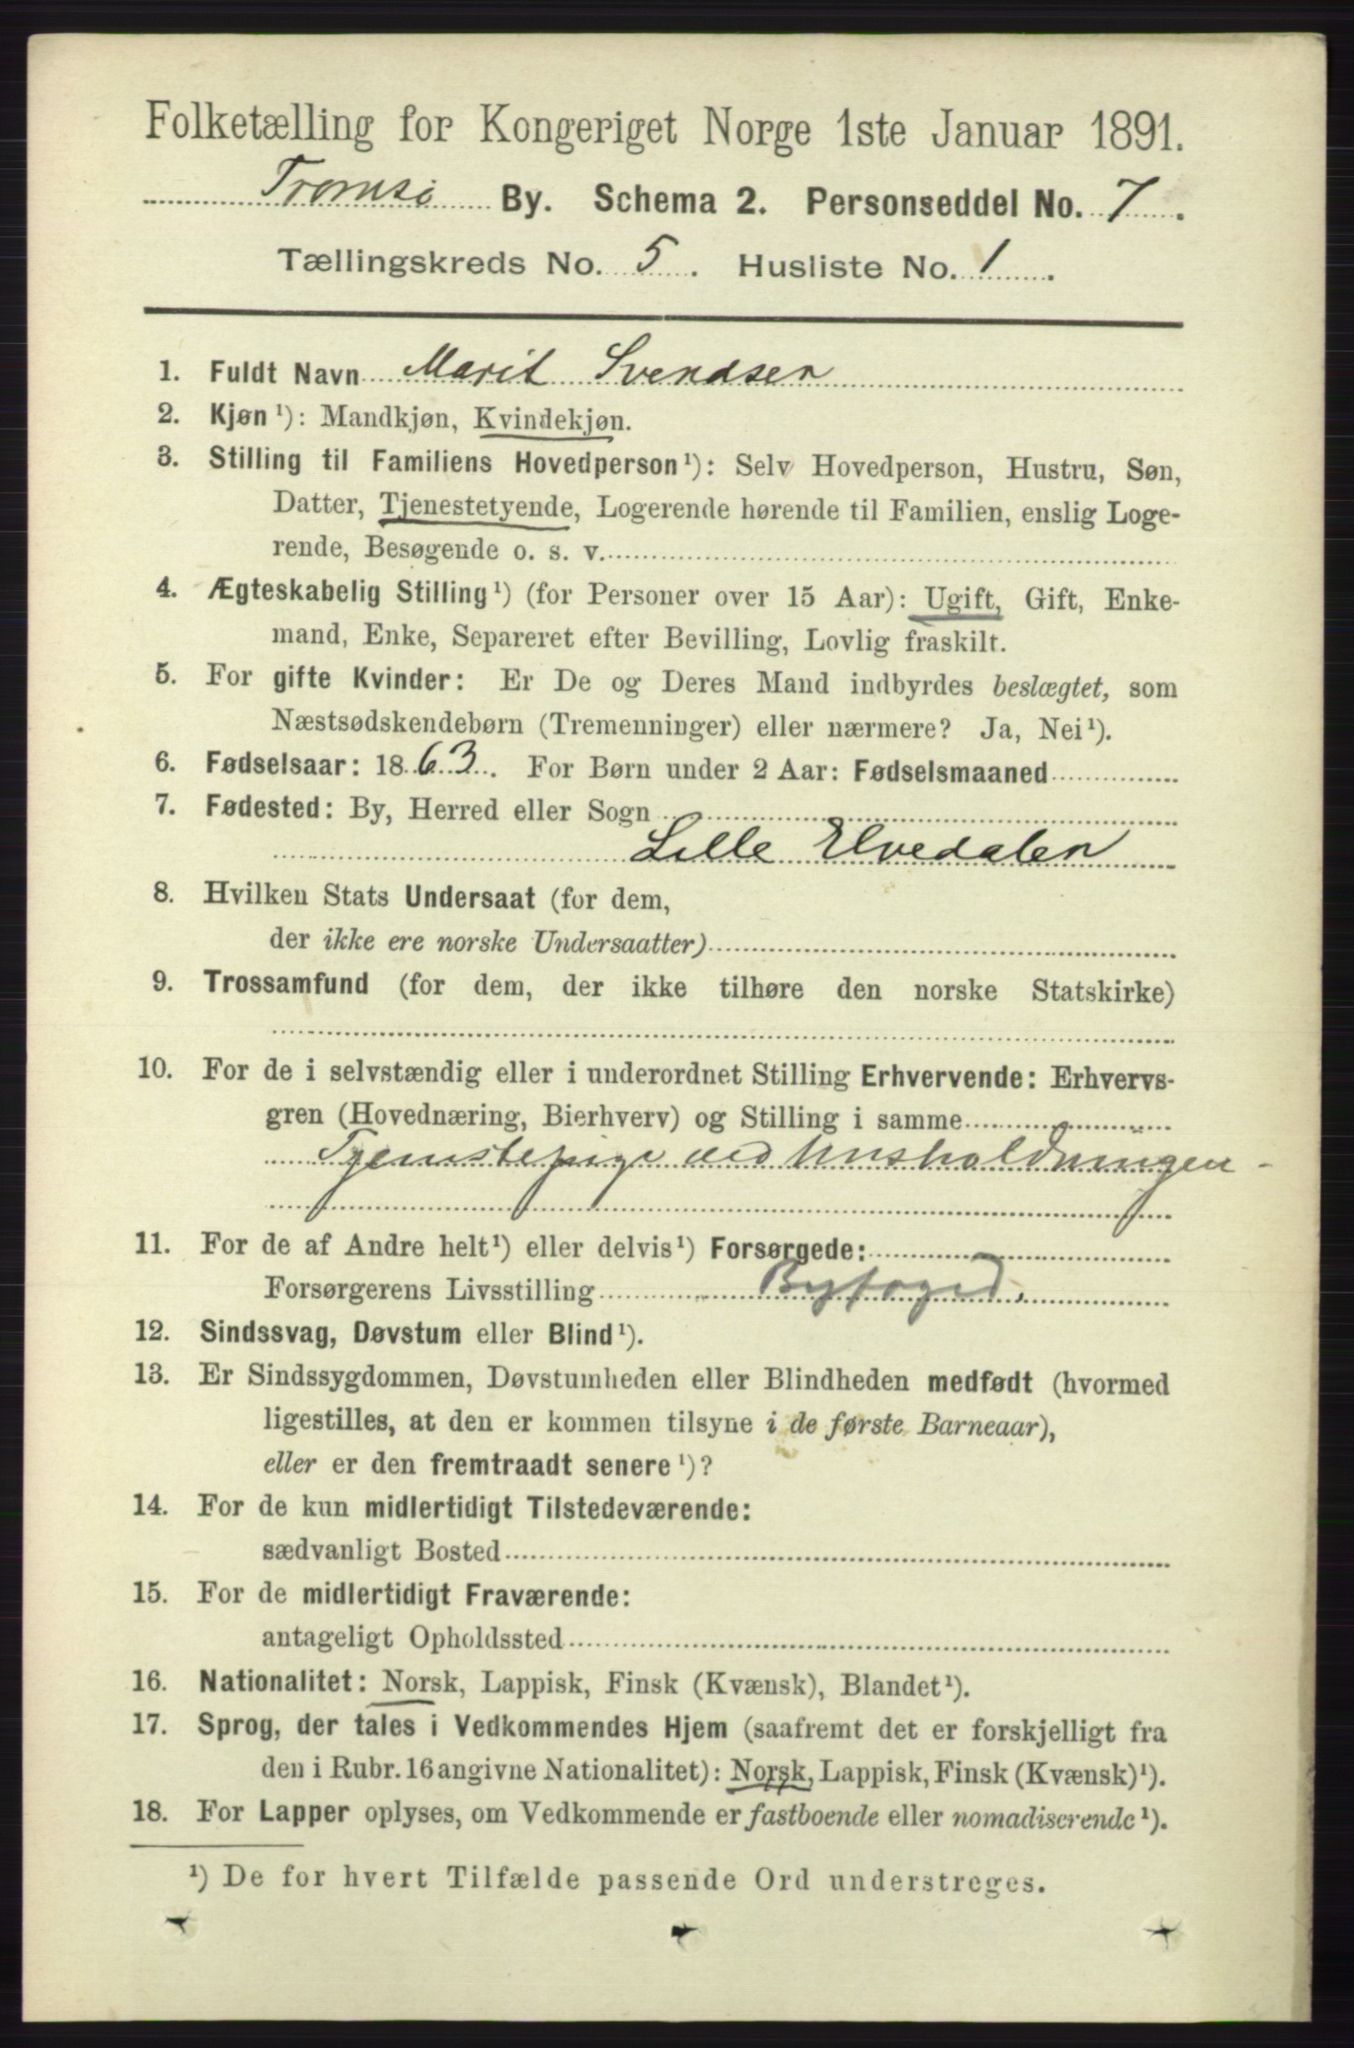 Folketælling for Kongeriget Norge 1ste Januar 1891.
Tromsø By. Schema 2. Personseddel No. 7.
Tællingskreds No. 5. Husliste No. 1.
1. Fuldt Navn Marit Svendsen
2. Kjøn ¹): Mandkjøn, Kvindekjøn.
3. Stilling til Familiens Hovedperson ¹): Selv Hovedperson, Hustru, Søn,
Datter, Tjenestetyende, Logerende hørende til Familien, enslig Loge-
rende, Besøgende o. s. v.
4. Ægteskabelig Stilling ¹) (for Personer over 15 Aar): Ugift, Gift, Enke-
mand, Enke, Separeret efter Bevilling, Lovlig fraskilt.
5. For gifte Kvinder: Er De og Deres Mand indbyrdes beslægtet, som
Næstsødskendebørn (Tremenninger) eller nærmere? Ja, Nei ¹).
6. Fødselsaar: 1863. For Børn under 2 Aar: Fødselsmaaned
7. Fødested: By, Herred eller Sogn
Lille Elvedalen
8. Hvilken Stats Undersaat (for dem,
der ikke ere norske Undersaatter)
9. Trossamfund (for dem, der ikke tilhøre den norske Statskirke)
10. For de i selvstændig eller i underordnet Stilling Erhvervende: Erhvervs-
gren (Hovednæring, Bierhverv) og Stilling i samme
Tjenstepige ved husholdningen
11. For de af Andre helt ¹) eller delvis ¹) Forsørgede:
Forsørgerens Livsstilling Byfoged.
12. Sindssvag, Døvstum eller Blind ¹).
13. Er Sindssygdommen, Døvstumheden eller Blindheden medfødt (hvormed
ligestilles, at den er kommen tilsyne i de første Barneaar),
eller er den fremtraadt senere ¹)?
14. For de kun midlertidigt Tilstedeværende:
sædvanligt Bosted
15. For de midlertidigt Fraværende:
antageligt Opholdssted
16. Nationalitet: Norsk, Lappisk, Finsk (Kvænsk), Blandet ¹).
17. Sprog, der tales i Vedkommendes Hjem (saafremt det er forskjelligt fra
den i Rubr. 16 angivne Nationalitet): Norsk, Lappisk, Finsk (Kvænsk) ¹).
18. For Lapper oplyses, om Vedkommende er fastboende eller nomadiserende ¹).
¹) De for hvert Tilfælde passende Ord understreges.